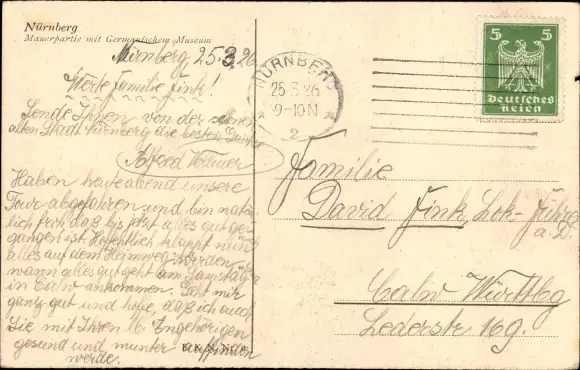 Nürnberg
Mauerpartie mit Germanischem Museum
Nürnberg, 25.3.26
Werte Familie Fink!
Sende Ihnen von der
alten Stadt Nürnberg die besten Grüße
Alfred
Haben heute abend unsere
Tour abgefahren und bin natür
lich froh daß bis jetzt alles gut ge-
gangen ist. Hoffentlich klappt nun auch
alles auf dem Heimweg. Werden
wann alles gut geht am Samstag
in Calw ankommen. Geht mir
ganz gut und hoffe, daß ich auch
Sie mit Ihren lb. Engehörigen
gesund und munter antreffen
werde.
NÜRNBERG
25.3.26
9-10N
2
5 5
Deutsches
Reich
Familie
David Fink, Lok-Führer
a. D.
Calw Württbg
Lederstr 169.